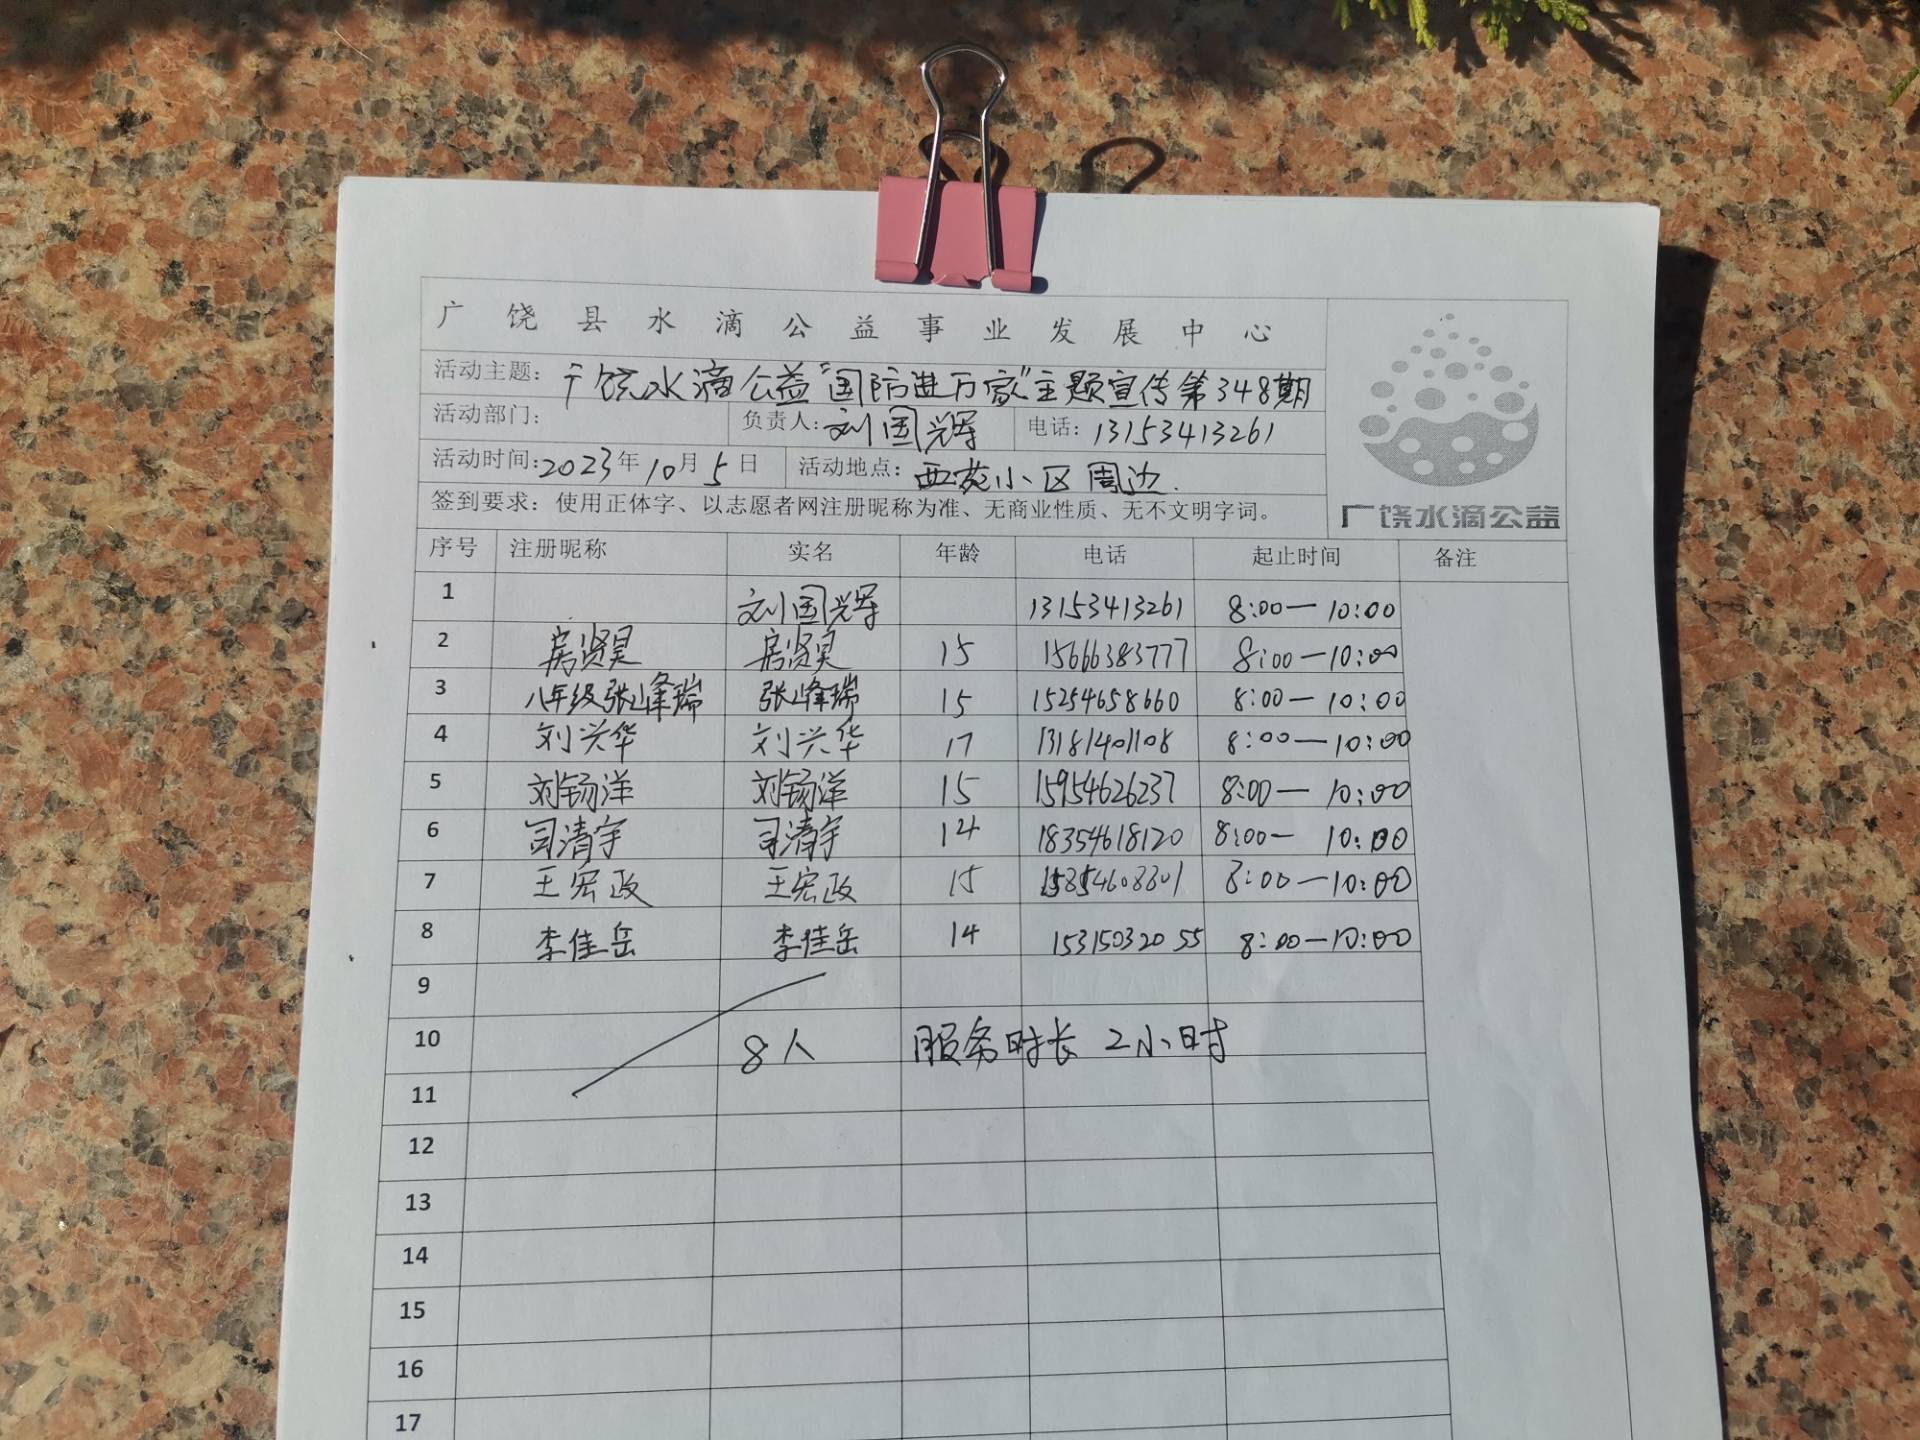 广饶县水滴公益事业发展中心
活动主题: 广饶水滴公益"国防进万家"主题宣传第348期
活动部门: 负责人: 刘国辉 电话: 13153413261
活动时间: 2023年10月5日 活动地点: 西苑小区周边.
签到要求: 使用正体字、以志愿者网注册昵称为准、无商业性质、无不文明字词。
广饶水滴公益
序号 注册昵称 实名 年龄 电话 起止时间 备注
1 刘国辉 13153413261 8:00—10:00
2 房贤昊 房贤昊 15 15666383777 8:00—10:00
3 八年级张峰瑞 张峰瑞 15 15254658660 8:00—10:00
4 刘兴华 刘兴华 17 13181401108 8:00—10:00
5 刘锡洋 刘锡洋 15 15954626237 8:00—10:00
6 司清宇 司清宇 14 18354618120 8:00—10:00
7 王宏政 王宏政 15 8:00—10:00
8 李佳岳 李佳岳 14 15315032055 8:00—10:00
9
10 8人 服务时长 2小时
11
12
13
14
15
16
17